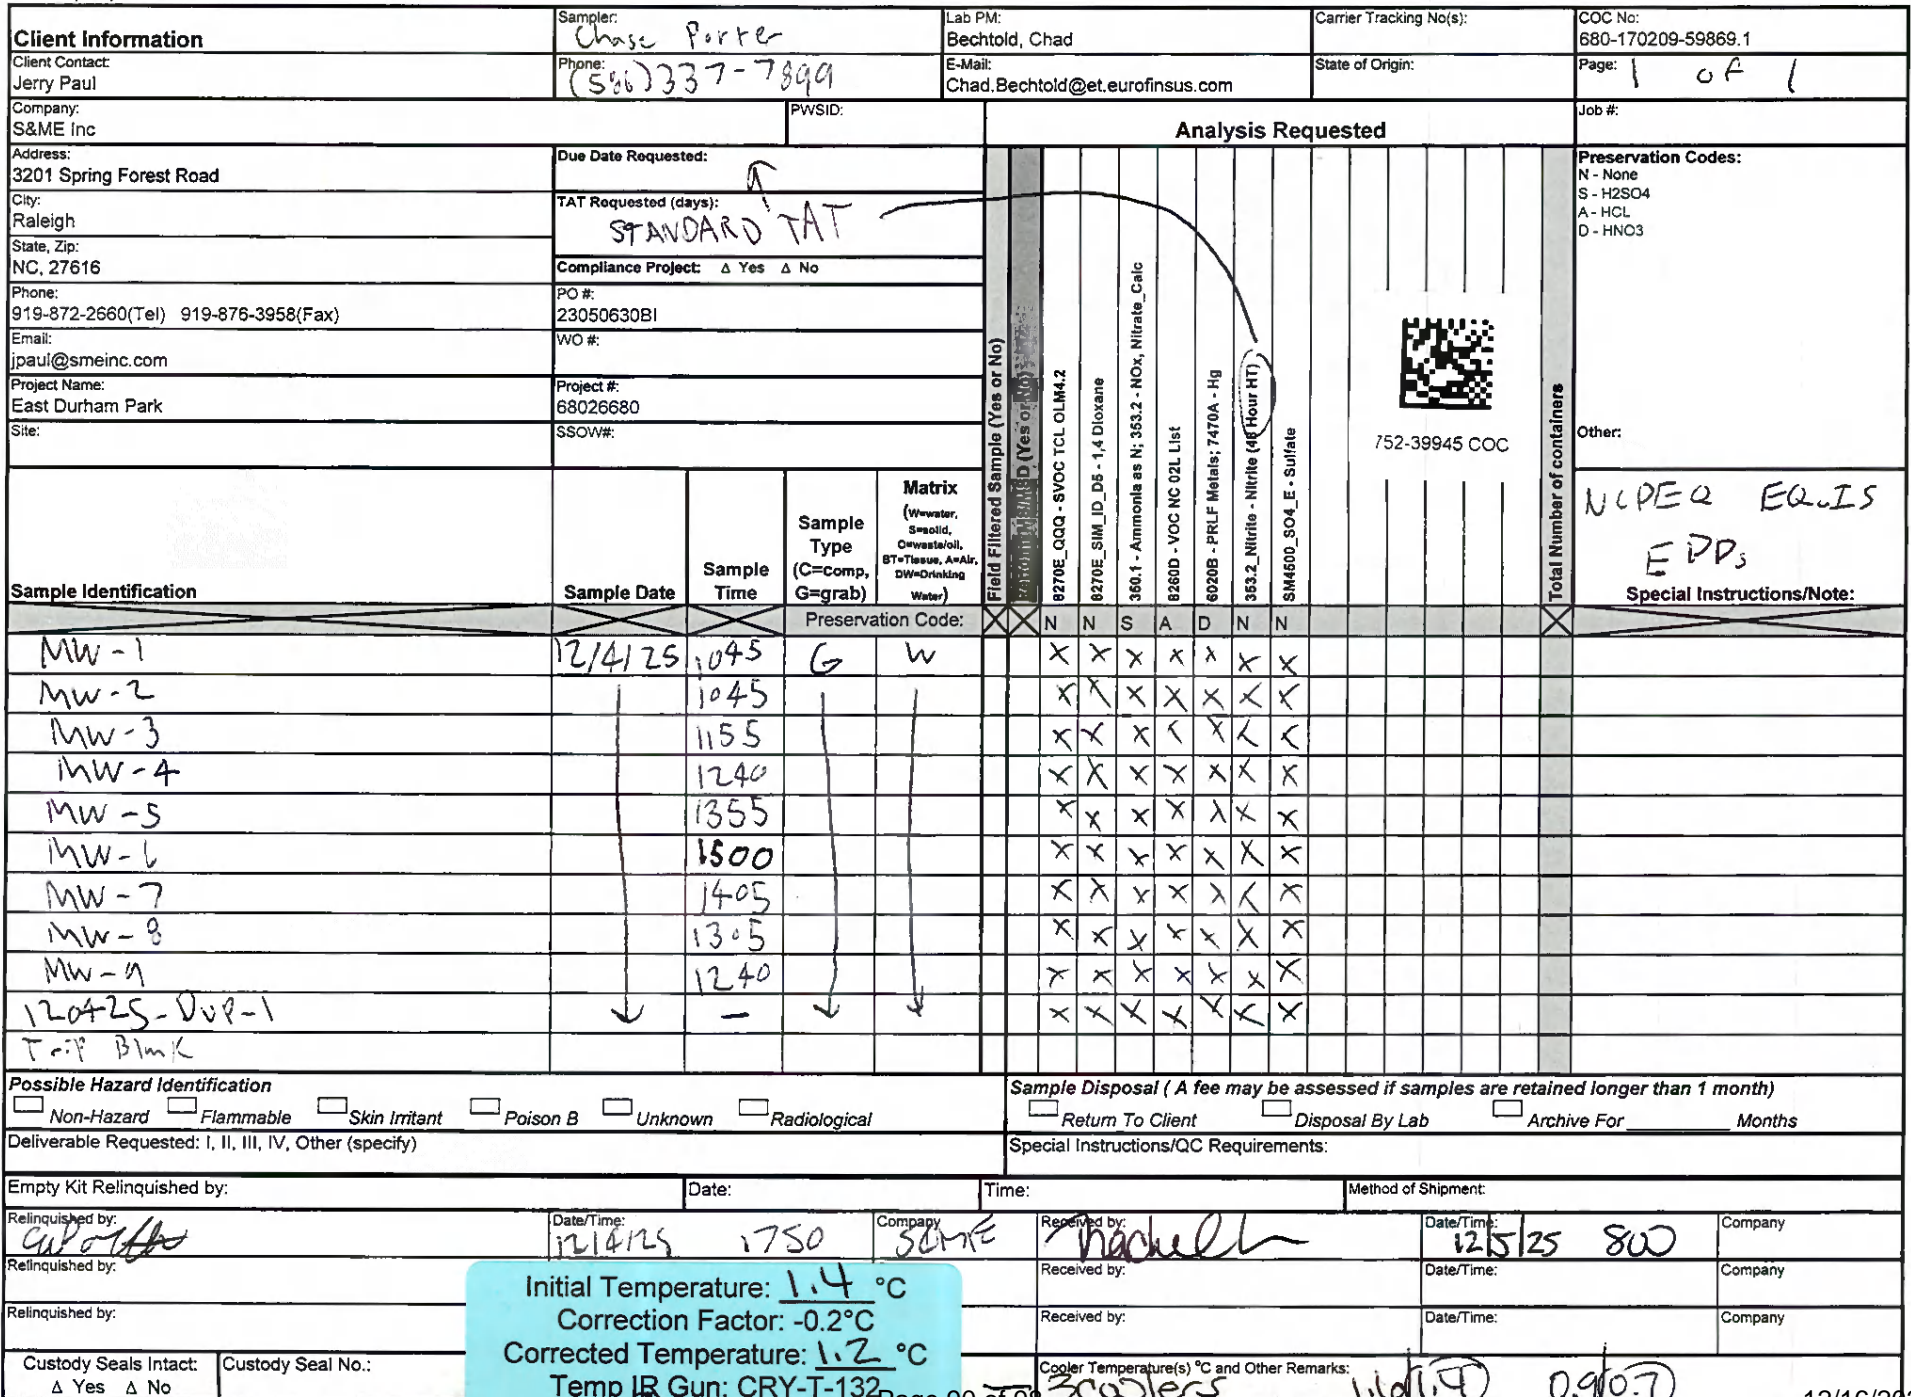 Client Information
Sampler: Chase Porter
Lab PM: Bechtold, Chad
Carrier Tracking No(s):
COC No: 680-170209-59869.1
Client Contact: Jerry Paul
Phone: (586)337-7899
E-Mail: Chad.Bechtold@et.eurofinsus.com
State of Origin:
Page: 1 of 1
Company: S&ME Inc
PWSID:
Analysis Requested
Job #:
Address: 3201 Spring Forest Road
Due Date Requested:
City: Raleigh
TAT Requested (days): STANDARD TAT
State, Zip: NC, 27616
Compliance Project: Δ Yes Δ No
Phone: 919-872-2660(Tel) 919-876-3958(Fax)
PO #: 23050630BI
Email: jpaul@smeinc.com
WO #:
Project Name: East Durham Park
Project #: 68026680
Site:
SSOW#:
Preservation Codes:
N - None
S - H2SO4
A - HCL
D - HNO3
Other:
752-39945 COC
NCDEQ EQuIS
EDDs
Special Instructions/Note:
Sample Identification
Sample Date
Sample Time
Sample Type (C=comp, G=grab)
Matrix (W=water, S=solid, O=waste/oil, BT=Tissue, A=Air, DW=Drinking Water)
Field Filtered Sample (Yes or No)
8270E_QQQ - SVOC TCL OLM4.2
8270E_SIM_ID_D5 - 1,4 Dioxane
350.1 - Ammonia as N; 353.2 - NOx, Nitrate_Calc
8260D - VOC NC 02L List
6020B - PRLF Metals; 7470A - Hg
353.2_Nitrite - Nitrite (48 Hour HT)
SM4500_SO4_E - Sulfate
Total Number of containers
Preservation Code: N N S A D N N
MW-1 12/4/25 1045 G W X X X X X X X
MW-2 1045 X X X X X X X
MW-3 1155 X X X X X X X
MW-4 1240 X X X X X X X
MW-5 1355 X X X X X X X
MW-6 1500 X X X X X X X
MW-7 1405 X X X X X X X
MW-8 1305 X X X X X X X
MW-9 1240 X X X X X X X
120425-DUP-1 - X X X X X X X
Trip Blank
Possible Hazard Identification
Non-Hazard Flammable Skin Irritant Poison B Unknown Radiological
Sample Disposal ( A fee may be assessed if samples are retained longer than 1 month)
Return To Client Disposal By Lab Archive For Months
Deliverable Requested: I, II, III, IV, Other (specify)
Special Instructions/QC Requirements:
Empty Kit Relinquished by:
Date:
Time:
Method of Shipment:
Relinquished by:
Date/Time: 12/4/25 1750
Company S&ME
Received by:
Date/Time: 12/5/25 800
Company
Relinquished by:
Received by:
Date/Time:
Company
Relinquished by:
Received by:
Date/Time:
Company
Initial Temperature: 1.4 °C
Correction Factor: -0.2°C
Corrected Temperature: 1.2 °C
Temp IR Gun: CRY-T-132
Custody Seals Intact: Δ Yes Δ No
Custody Seal No.:
Cooler Temperature(s) °C and Other Remarks:
3 coolers 0.9/0.7